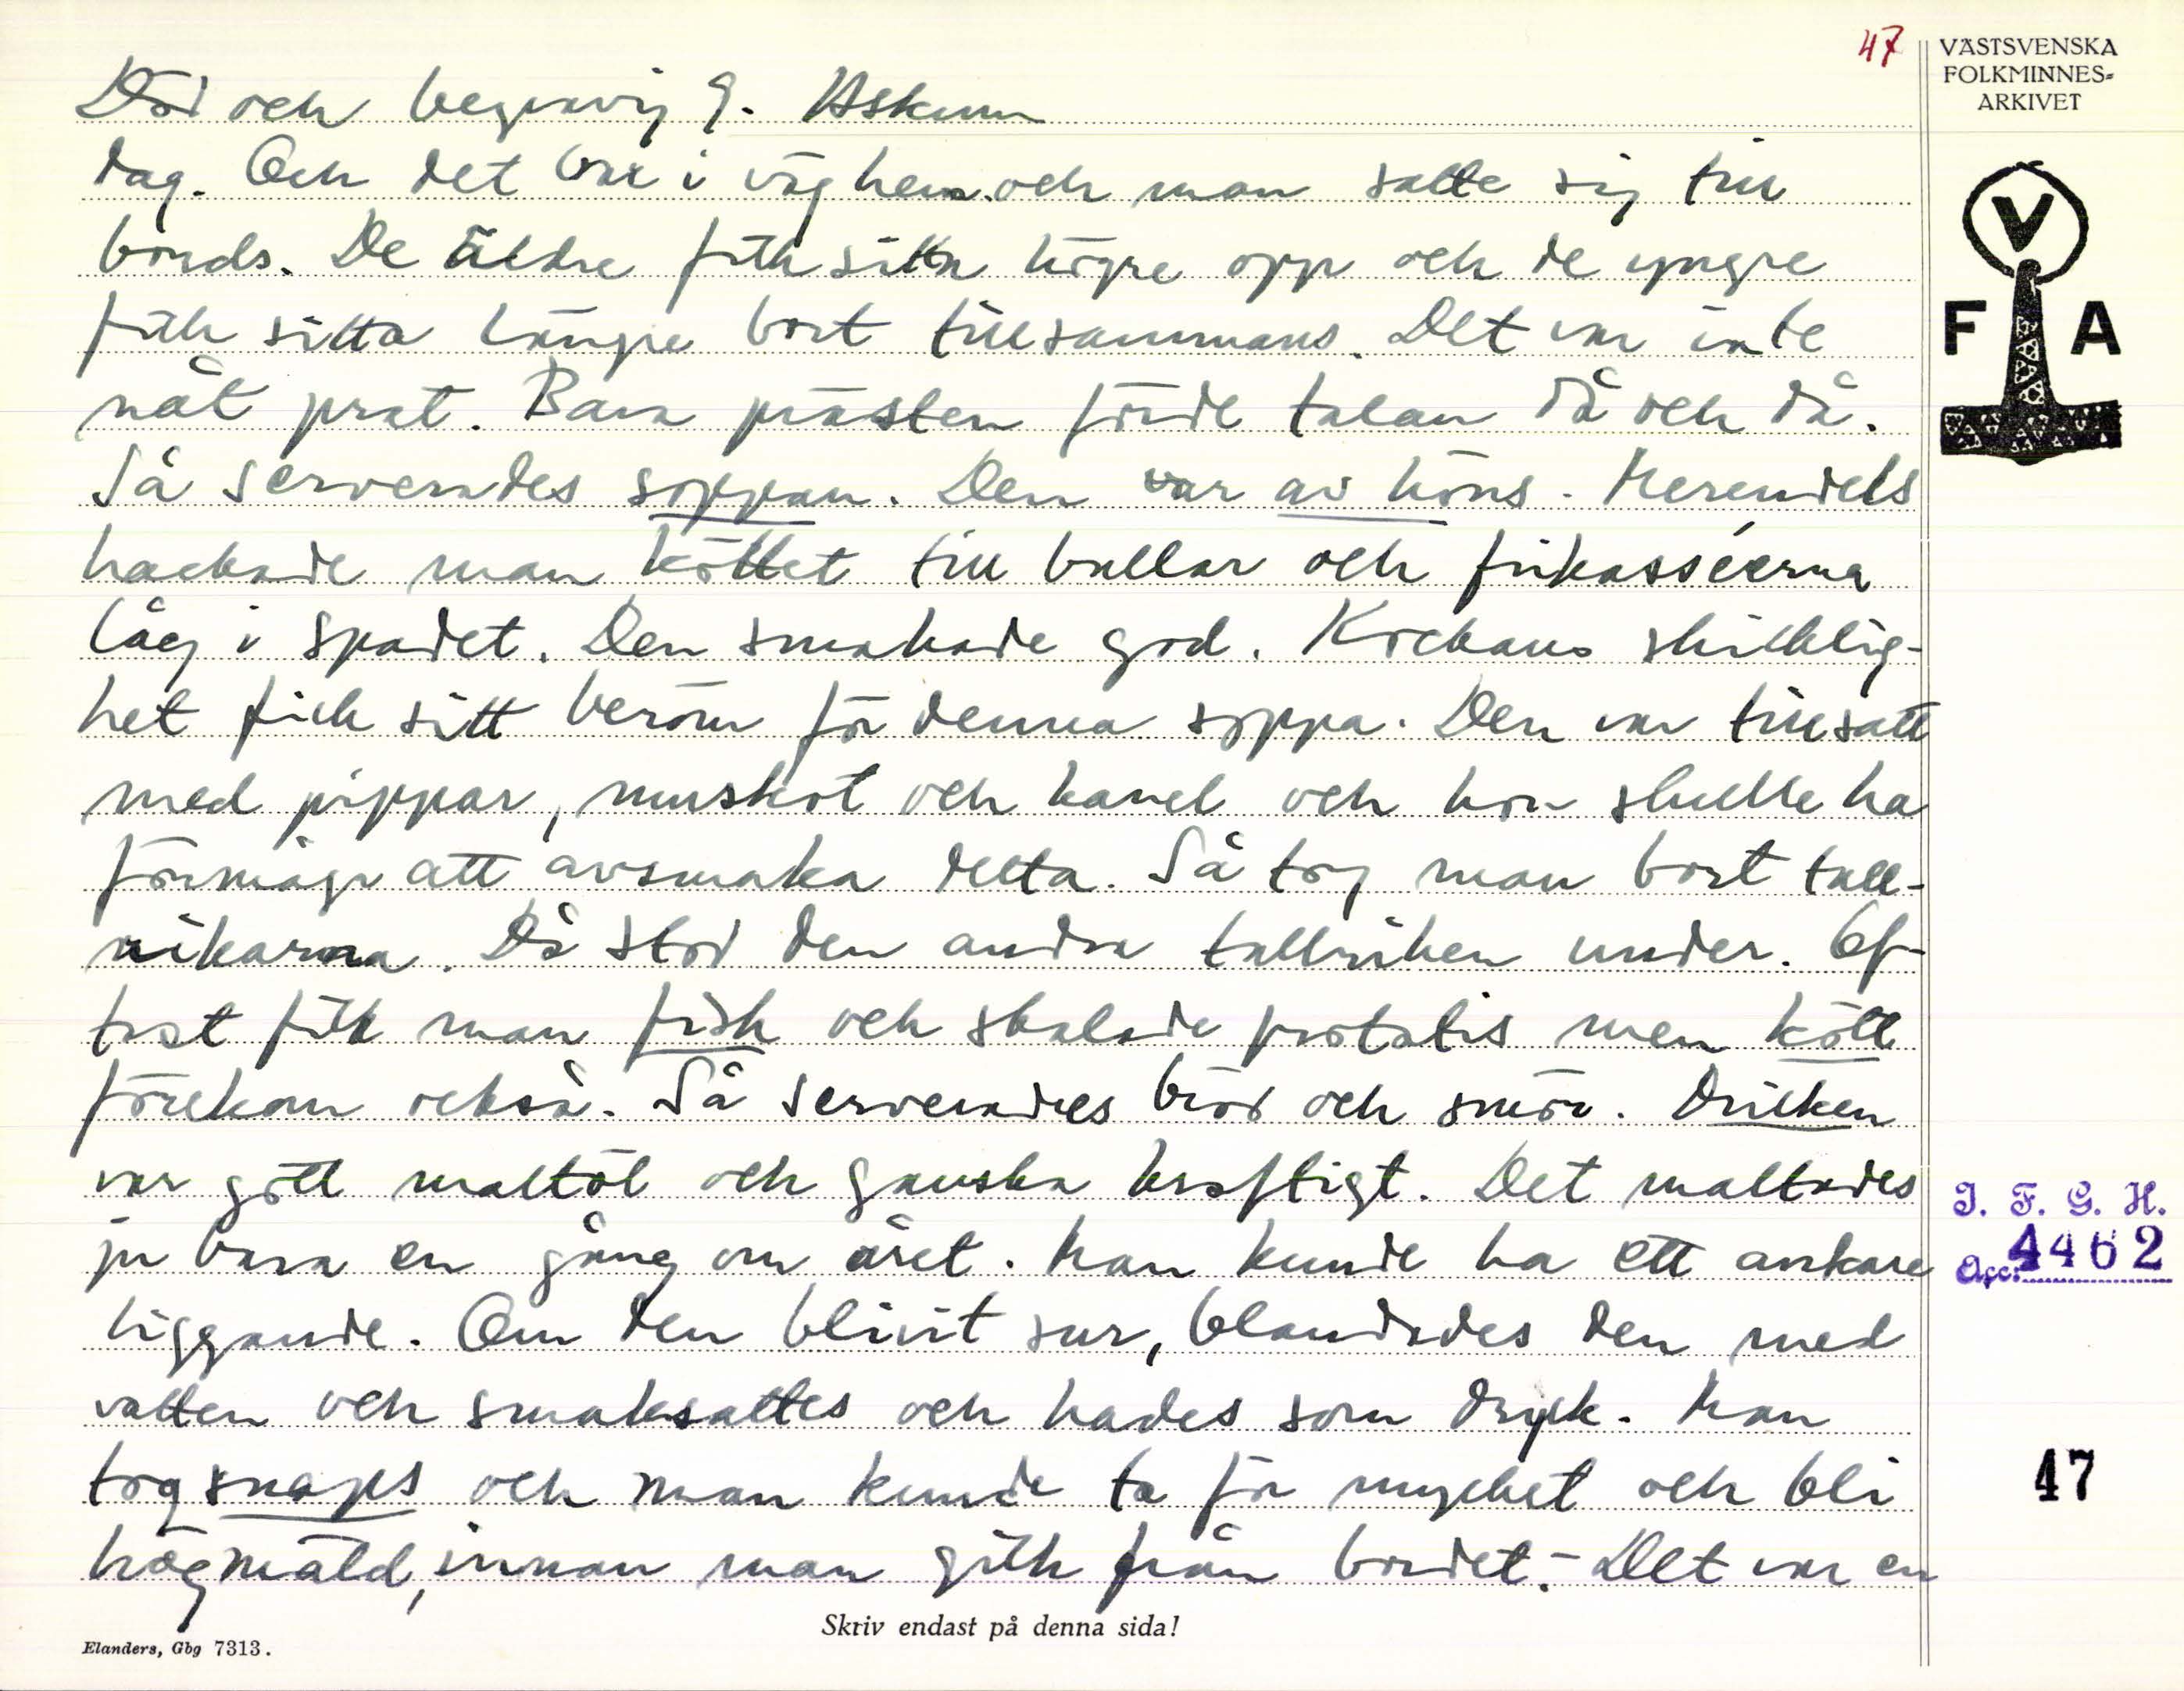 47
VÄSTSVENSKA
FOLKMINNES-
ARKIVET
Död och begravning 9. Askum
dag. Och det bar i väg hem och man satte sig till
bords. De äldre fick sitta högre opp och de yngre
fick sitta längre bort tillsammans. Det var inte
nåt prat. Bara prästen förde talan då och då.
Så serverades soppan. Den var av höns. Merendels
hackade man köttet till bullar och frikasséerna
låg i spadet. Den smakade god. Kockans skicklig-
het fick sitt beröm för denna soppa. Den var tillsatt
med pippar, muskot och kanel och hon skulle ha
förmåga att avsmaka detta. Så tog man bort tall-
rikarna. Då stod den andra tallriken under. Of-
tast fick man fisk och skalade protatis men kött
förekom också. Så serverades bröd och smör. Dricken
var gött maltöl och ganska kraftigt. Det maltades
ju bara en gång om året. Man kunde ha ett ankare
liggande. Om den blivit sur, blandades den med
vatten och smaksattes och hades som dryck. Man
tog snaps och man kunde ta för mycket och bli
högmäld, innan man gick från bordet. - Det var en
V
F A
I. F. G. H.
Acc. 4462
47
Skriv endast på denna sida!
Elanders, Gbg 7313.